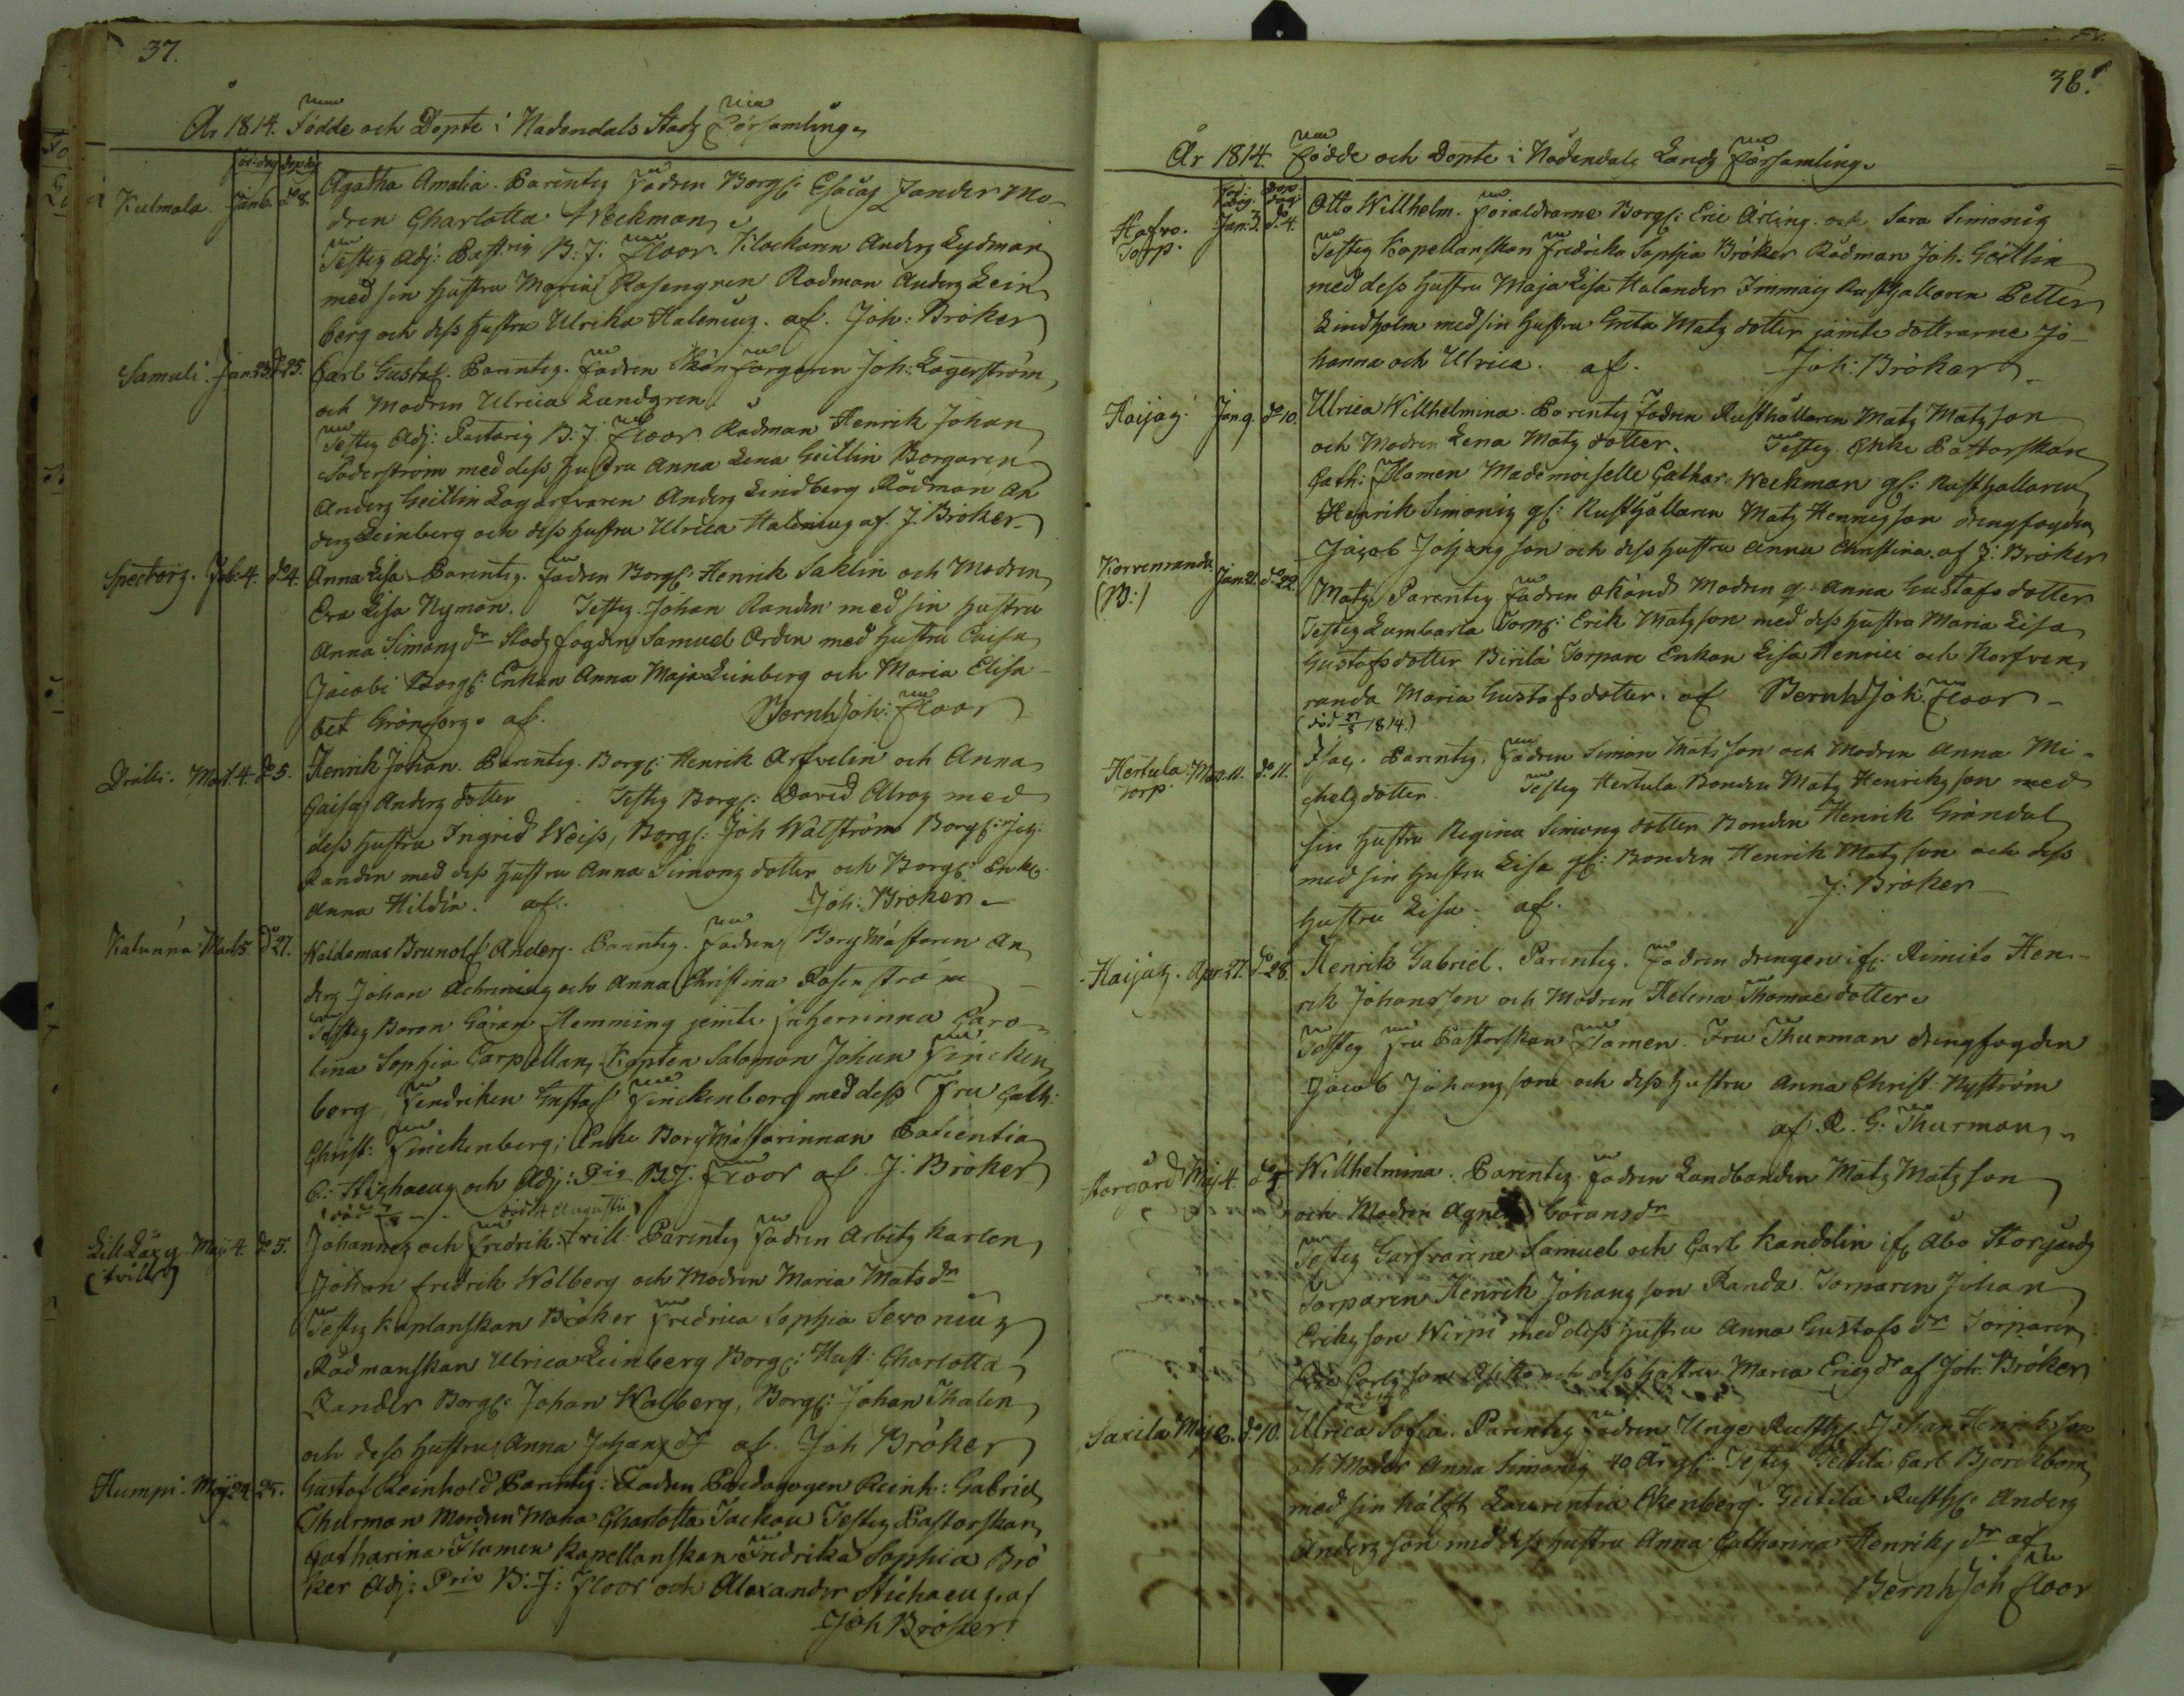 37.
År 1814. Födde och Döpte i Nådendals Stadz Församling.
föd: dag döp dag
Kulmala. Jan 6. do 8. Agatha Amalia. Parentes Fadren Borg: Esaias Zander Mo-
dren Charlotta Weckman.
Testes Adj: Past:ris B: J. Floor. Klockaren Anders Lydman
med sin hustru Maria Rosengren Rådman Anders Lein
berg och dess hustru Ulrika Halenius. af. Joh: Bröker
Samuli. Jan. 23. do 25. Carl Gustaf. Parentes. Fadren Skönfärgaren Joh: Lagerström,
och Modren Ulrica Lundgren.
Testes Adj: Pastoris B. J. Floor Rådman Henrik Johan
Söderström med dess hustru Anna Lena Geitlin Borgaren
Anders Geitlin Lagarfvaren Anders Lindberg Rådman An
ders Leinberg och dess hustru Ulrica Halenius af. J. Bröker
Spectars. Feb. 4. do 4. Anna Lisa Parentes. Fadren Borg: Henrik Saklin och Modren
Eva Lisa Nyman. Testes. Johan Randen med sin hustru
Anna Simons dr Stads fogden Samuel Orden med hustru Caisa
Jacobi Borg: Enkan Anna Maja Leinberg och Maria Elisa-
bet Grönfors. af. Bernh Joh: Floor
Drälli. Mart. 4. do 5. Henrik Johan. Parentes. Borg: Henrik Arfvelin och Anna
Caisa Anders dotter Testes Borg: David Alroz med
dess hustru Ingrid Weiss, Borg: Joh Walström Borg:
Randen med dess hustru Anna Simons dotter och Borg: Enk:
Anna Hildén. af. Joh: Bröker
Katunna Mart. 5. do 27. Waldemar Brunolf Anders. Parentes. Fadren Borgmästaren An
ders Johan Achrenius och Anna Christina Rosenström
Testes Baron Göran Flemming jemte friherrinna Caro-
lina Sophia Carpellan, Kapten Salomon Johan Fincken
berg, Fendriken Gustaf Finckenberg med dess Fru Cath:
Christ: Finckenberg; Enke Borgmästarinnan Patientia
C: Stichaeus och Adj: Pis B. J. Floor af. J: Bröker
död 4 Augusti
Lill Läxy Maji 4. do 5. Johannes och Fredrik: tvill: Parentes Fadren Arbets Karlen,
(tvill:) Johan Fredrik Wolberg och Modren Maria Mats dr
Testes Kaplanskan Bröker Fredrica Sophia Sevonius
Rådmanskan Ulrica Leinberg Borg: Hust: Charlotta
Zander Borg: Johan Walberg, Borg: Johan Thalin
och dess hustru Anna Johans dr af. Joh Bröker
Humpi. Maji 24. 25. Gustaf Reinhold Parentes: Fadren Paedagogen Reinh: Gabriel
Thurman Modren Maria Charlotta Tackou Testes Pastorskan,
Catharina Flomen Kapellanskan Fredrika Sophia Brö
ker Adj: Pris B. J: Floor och Alexander Stichaeus. af
Joh Bröker
38.
År 1814. Födde och Döpte i Nådendals Landz Församling.
Föd: dag. Döp. dag
Hafvo. Jan: 3. d. 4. Otto Willhelm. Föräldrarne Borg: Eric Arling. och Sara Simonis
Torp. Testes Kapellanskan Fredrika Sophia Bröker Rådman Joh. Geitlin
med dess hustru Maja Lisa Halander Immais Rusthållaren Petter
Lindholm med sin hustru Greta Mats dotter jämte döttrarne Jo-
hanna och Ulrica. af. Joh: Bröker
Haijas. Jan 9. do 10. Ulrica Willhelmina. Parentes Fadren Rusthållaren Mats Matsson
och Modren Lena Mats dotter. Testes Enke Pastorskan
Cath: Flomen Mademoiselle Cathar: Weckman gl: Rusthållaren
Henrik Simonis gl: Rusthållaren Mats Hennesson drengfogden
Jacob Johansson och dess hustru Anna Christina. af J: Bröker
Korvenranda Jan. 21. do 22. Mats Parentes Fadren okänd Modren q. Anna Gustafs dotter
(B:) Testes Lumbarla Torp: Erik Matsson med dess hustru Maria Lisa
Gustafs dotter Birilä Torpare Enkan Lisa Henrici och Korfven
randa Maria Gustafs dotter. af Bernh Joh. Floor
(död 27/3 1814.)
Hertula Mar. 11. do 11. Isac. Parentes. Fadren Simon Mats son och Modren Anna Mi-
Torp. chels dotter Testes Hertula Bonden Mats Henriksson med
sin hustru Regina Simons dotter Bonden Henrik Gröndal
med sin hustru Lisa gl: Bonden Henrik Matsson och dess
hustru Lisa. af. J: Bröker
Haijas. Apr. 27. do 28. Henrik Gabriel. Parentes. Fadren drengen if: Rimito Hen-
rik Johansson och Modren Helena Thomae dotter.
Testes Fru Pastorskan Flomen. Fru Thurman drengfogden
Jacob Johansson och dess hustru Anna Christ: Nyström
af R. G: Thurman.
Storgård Maj 4. do 5 Willhelmina. Parentes. Fadren Landbonden Mats Matsson
och Modren Agnes Görans dr
Testes Garfvarene Samuel och Carl Kandolin if: Åbo Storgårds
Torparen Henrik Johansson Randa. Torparen Johan
Eriksson Wirpi med dess hustru Anna Gustafs dr Torparen
Carlsson och dess hustru Maria Erics dr af Joh: Bröker
Saxila Maji 8. do 10. Ulrica Sofia. Parentes Fadren Unge Rusth: Johan Henriksson
och Moder Anna Simonis 40 år gl: Testes Geitilä Carl Björckbom
med sin hälft Laurentia Ekenberg. Geitilä Rusth: Anders
Andersson med dess hustru Anna Catharina Henriks dr af
Bernh Joh Floor